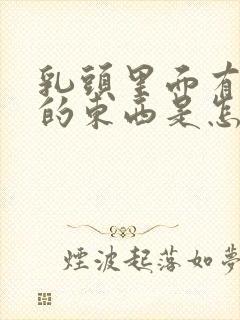 乳頭里面有
的東西是怎
煙波起落如夢